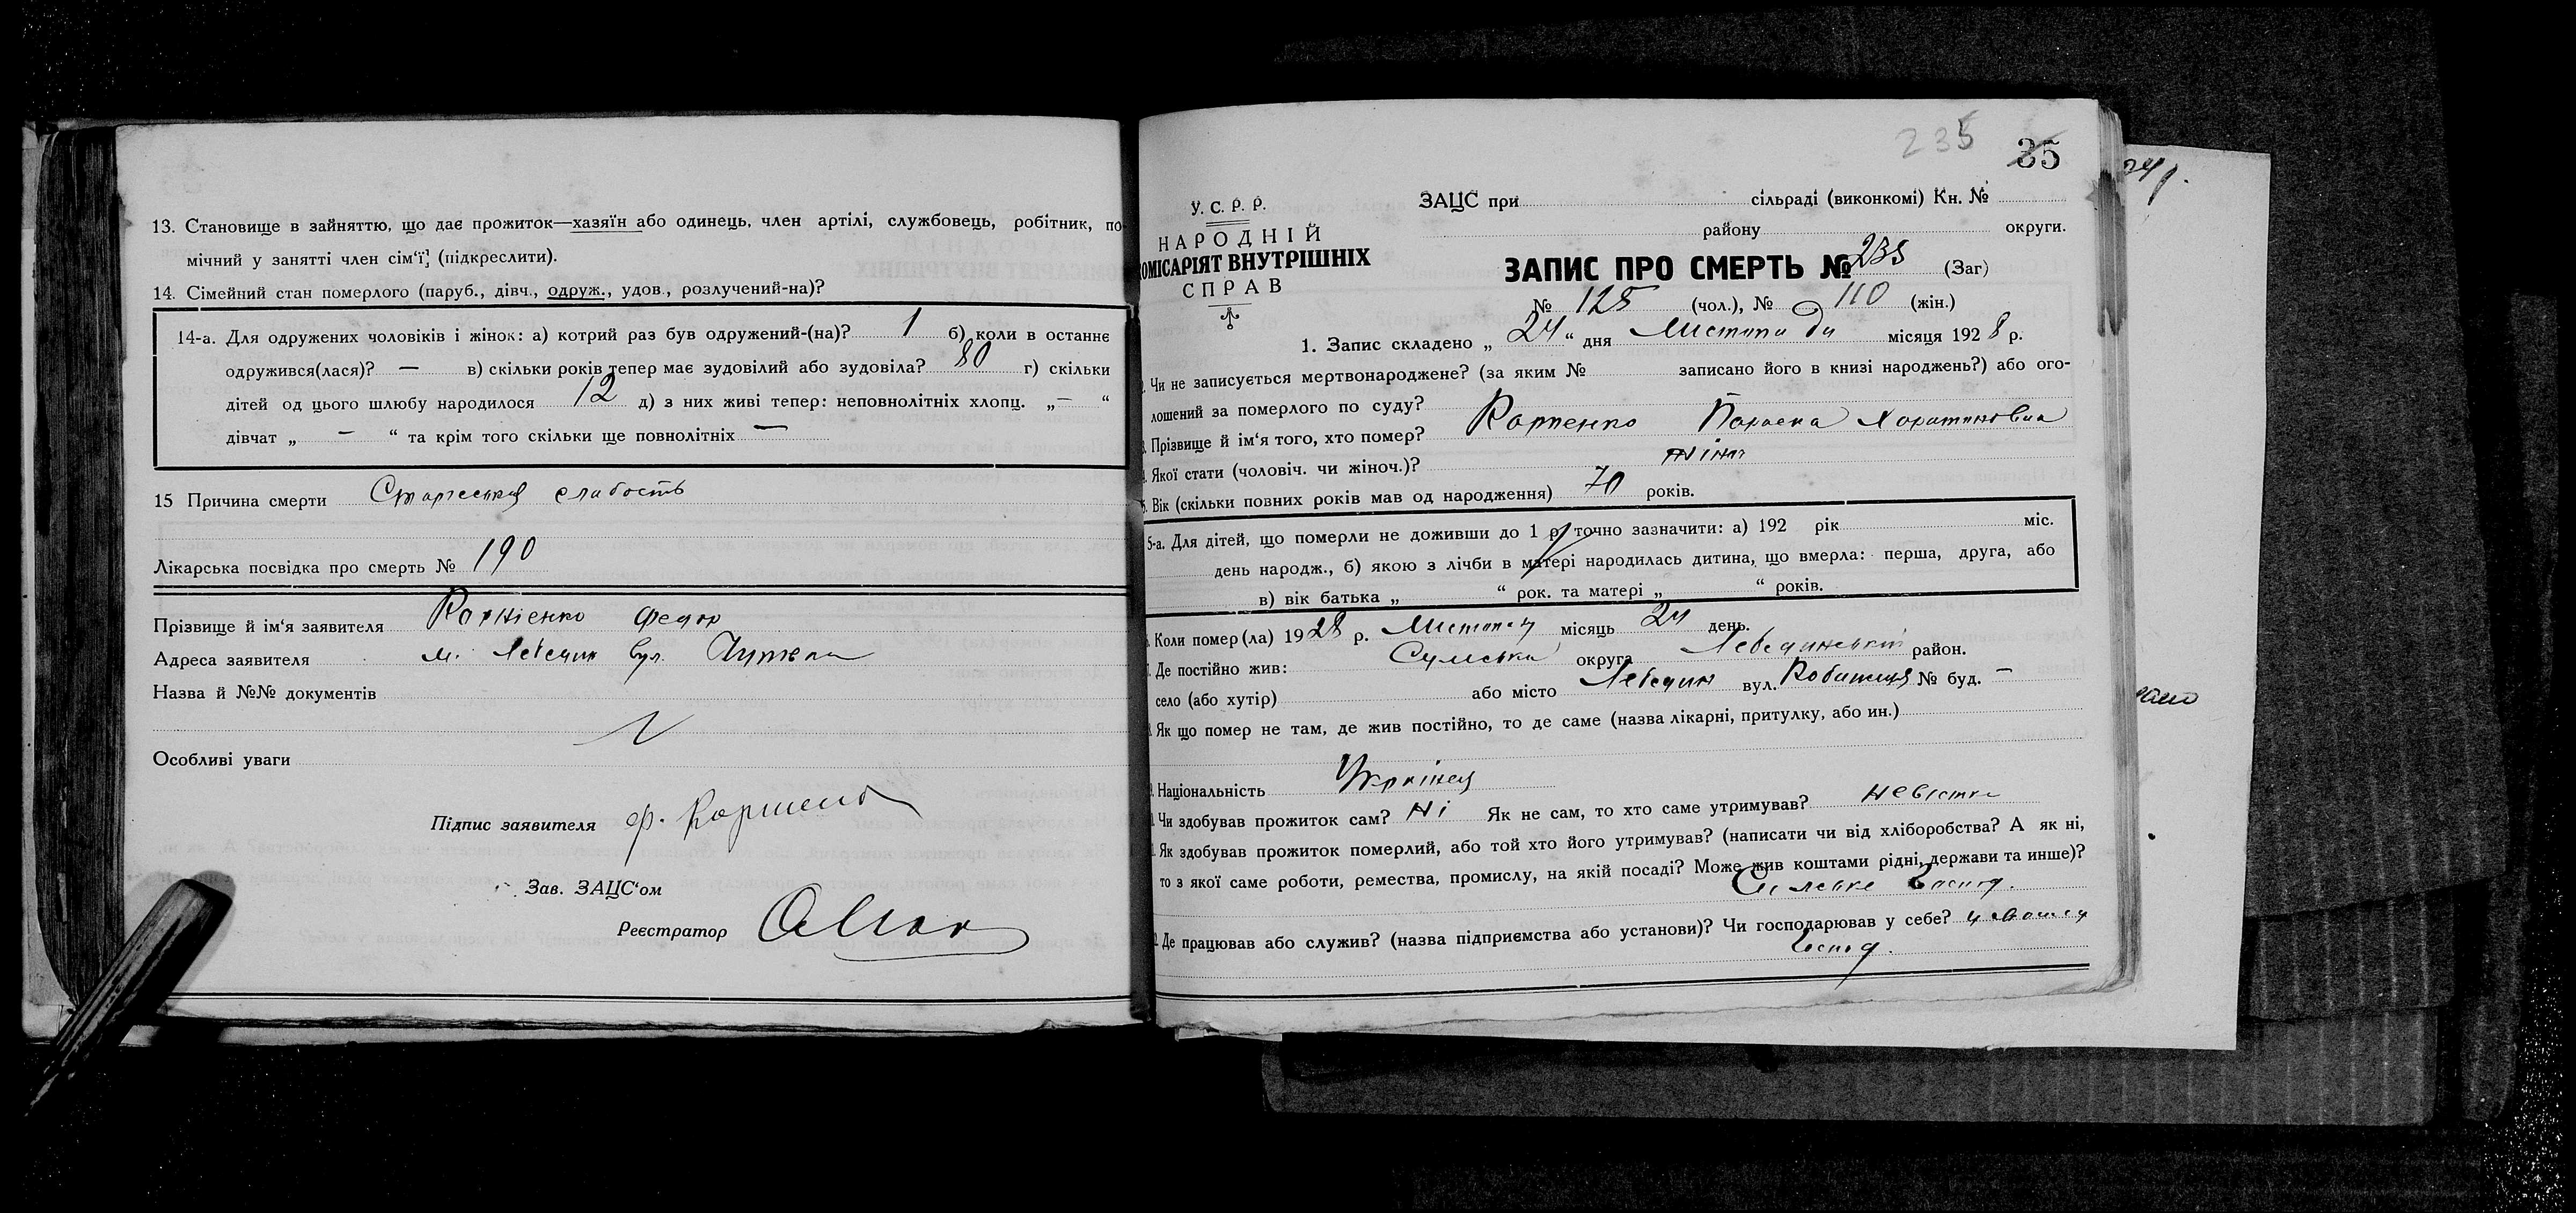 13. Становище в зайняттю, що дає прожиток—хазяїн або одинець, член артілі, службовець, робітник, по-
мічний у занятті член сім'ї] (підкреслити).
14. Сімейний стан померлого (паруб., дівч., одруж., удов., розлучений-на)?
14-а. Для одружених чоловіків і жінок: а) котрий раз був одружений-(на)? 1 б) коли в останнє
одружився(лася)? — в) скільки років тепер має зудовілий або зудовіла? 80 г) скільки
дітей од цього шлюбу народилося 12 д) з них живі тепер: неповнолітніх хлопц. „—“
дівчат „—“ та крім того скільки ще повнолітніх —
15 Причина смерти Старческая слабость
Лікарська посвідка про смерть № 190
Прізвище й ім'я заявителя Федор
Адреса заявителя м. Лебедин вул.
Назва й №№ документів
Особливі уваги
Підпис заявителя Ф.
Зав. ЗАЦС'ом
Реєстратор
235
35
У. С. Р. Р.
НАРОДНІЙ
ОМІСАРІЯТ ВНУТРІШНІХ
СПРАВ
ЗАЦС при сільраді (виконкомі) Кн. №
району округи.
ЗАПИС ПРО СМЕРТЬ № 235 (Заг)
№ 125 (чол.), № 110 (жін.)
1. Запис складено „24“ дня Листопада місяця 1928 р.
Чи не записується мертвонароджене? (за яким № записано його в книзі народжень?) або ого-
лошений за померлого по суду?
Прізвище й ім'я того, хто помер? Параска Харитиновна
Якої стати (чоловіч. чи жіноч.)? жіно
Вік (скільки повних років мав од народження) 70 років.
5-а. Для дітей, що померли не доживши до 1 р. точно зазначити: а) 192 рік міс.
день народж., б) якою з лічби в матері народилась дитина, що вмерла: перша, друга, або
в) вік батька „ “ рок. та матері „ “ років.
Коли помер(ла) 1928 р. Листопад місяць 24 день.
Де постійно жив: Сумська округа Лебединський район.
село (або хутір) або місто Лебедин вул. № буд. —
Як що помер не там, де жив постійно, то де саме (назва лікарні, притулку, або ин.)
Національність Українец
Чи здобував прожиток сам? Ні Як не сам, то хто саме утримував? невістка
Як здобував прожиток померлий, або той хто його утримував? (написати чи від хліборобства? А як ні,
то з якої саме роботи, ремества, промислу, на якій посаді? Може жив коштами рідні, держави та инше)?
Сильське госпд.
Де працював або служив? (назва підприємства або установи)? Чи господарював у себе? у свошем
госпд.